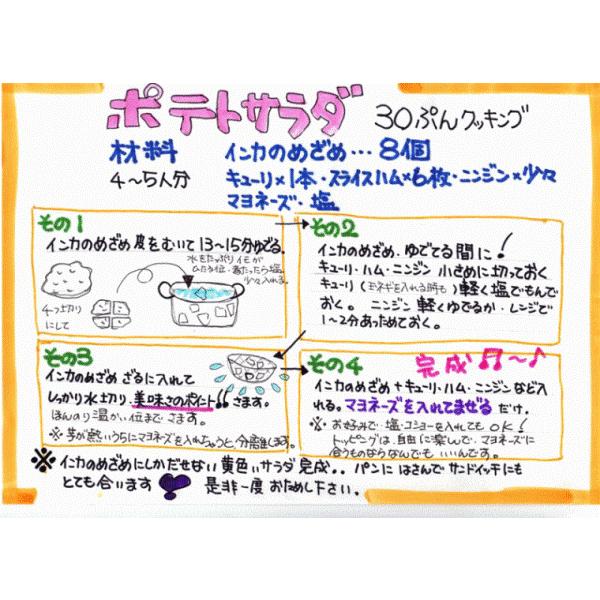 ポテトサラダ 30ぷんクッキング
材料 インカのめざめ・・・8個
4〜5人分 キューリ×1本・スライスハム×6枚・ニンジン×少々
マヨネーズ・塩
その1
インカのめざめ 皮をむいて13〜15分ゆでる。
水をたっぷりイモが
ひたる位・煮たったら塩
少々入れる。
4つ切り
にして
その2
インカのめざめ・ゆでてる間に!
キューリ・ハム・ニンジン 小さめに切っておく
キューリ(玉ネギを入れる時も)軽く塩でもんで
おく。 ニンジン 軽くゆでるか・レンジで
1〜2分あっためておく。
その3
インカのめざめ ざるに入れて
しっかり水切り。美味さのポイント!! さます。
ほんのり温かい位まで さます。
※ 芋が熱いうちにマヨネーズを入れちゃうと、分離します。
その4 完成♫〜♪
インカのめざめ+キューリ・ハム・ニンジンなど入
れる。マヨネーズを入れてまぜる だけ.
※ お好みで、塩・コショーを入れても OK!
トッピングは、自由に楽しんで、マヨネーズに
合うものならなんでも いいんです。
※ インカのめざめにしかだせない 黄色いサラダ 完成.. パンに はさんで サンドイッチにも
とても合います 是非一度 おためし下さい.